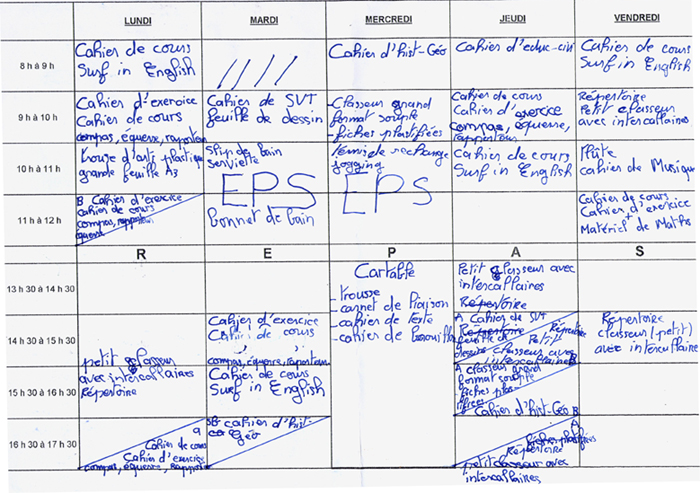 LUNDI MARDI MERCREDI JEUDI VENDREDI
8 h à 9 h
Cahier de cours
Surf in English
Cahier d'hist-Géo
Cahier d'educ-civ
Cahier de cours
Surf in English
9 h à 10 h
Cahier d'exercice
Cahier de cours
compas, équerre, rapporteur
Cahier de SVT
feuille de dessin
- Classeur grand
format souple
- fiches plastifiées
Cahier de cours
Cahier d'exercice
compas, équerre,
rapporteur
Répertoire
Petit classeur
avec intercallaires
10 h à 11 h
trousse d'arts plastique
grande feuille A3
Slip de bain
serviette
EPS
Tennis de rechange
jogging
EPS
Cahier de cours
Surf in English
Flûte
cahier de Musique
11 h à 12 h
B Cahier d'exercice
cahier de cours
compas, rapporteur
équerre
bonnet de bain
Cahier de cours
Cahier d'exercice
+
Matériel de Maths
R E P A S
13 h 30 à 14 h 30
Cartable
- trousse
- carnet de liaison
- cahier de texte
- cahier de brouillon
Petit classeur avec
intercallaires
Répertoire
14 h 30 à 15 h 30
Cahier d'exercice
Cahier de cours
compas, équerre, rapporteur
A Cahier de SVT
feuille de
dessin
Répertoire
Petit
classeur avec
intercallaires B
Répertoire
classeur (petit)
avec intercallaire
15 h 30 à 16 h 30
petit classeur
avec intercallaires
Répertoire
Cahier de cours
Surf in English
A classeur grand
format souple
fiches plas-
tifiées
Cahier d'hist-Géo B
16 h 30 à 17 h 30
Cahier de cours
Cahier d'exercice
compas, équerre, rapport
cahier d'hist-
Géo
A
fiches plastifiées
Répertoire
petit classeur avec
intercallaires